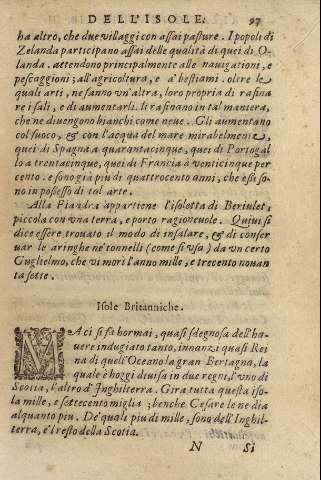 DELL'ISOLE. 97
ha altro, che due villaggi con assai pasture. I popoli di
Zelanda participano assai delle qualità di quei di O-
landa. attendono principalmente alle nauigationi, e
pescaggioni; all'agricoltura, e a' bestiami. oltre le
quali arti, ne fanno vn'altra, loro propria di rafina
re i sali, e di aumentarli. li rafinano in tal maniera,
che ne diuengono bianchi come neue. Gli aumentano
col fuoco, & con l'acqua del mare mirabelmente,
quei di Spagna a quarantacinque, quei di Portogal
lo a trentacinque, quei di Francia a venticinque per
cento. e sono già piu di quattrocento anni, che essi so-
no in possesso di tal arte.
Alla Fiandra appartiene l'isoletta di Beriulet,
piccola con vna terra, e porto ragioneuole. Quiui si
dice essere trouato il modo di insalare, & di conser
uar le aringhe ne' tonnelli (come si vsa) da vn certo
Guglielmo, che vi morì l'anno mille, e trecento nouan
ta sette.
Isole Britanniche.
MA ci si fà hormai, quasi sdegnosa dell'ha-
uere indugiato tanto, innanzi quasi Rei
na di quell'Oceano la gran Bertagna, la
quale è hoggi diuisa in due regni, l'vno di
Scotia, l'altro d'Inghilterra. Gira tutta questa iso-
la mille, e settecento miglia; benche Cesare le ne dia
alquanto piu. De' quali piu di mille, sono dell'Inghil-
terra, e'l resto della Scotia.
N Si